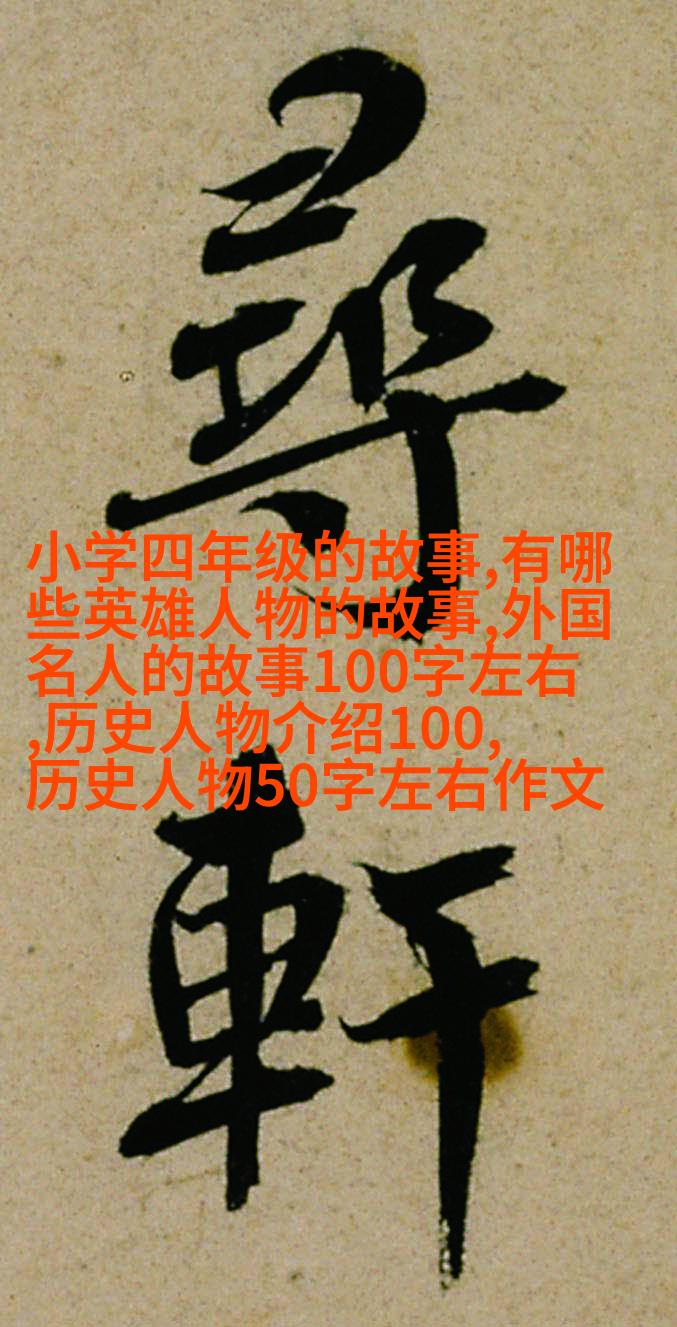 尋
軒
小学四年级的故事,有哪
些英雄人物的故事,外国
名人的故事100字左右
,历史人物介绍100,
历史人物50字左右作文